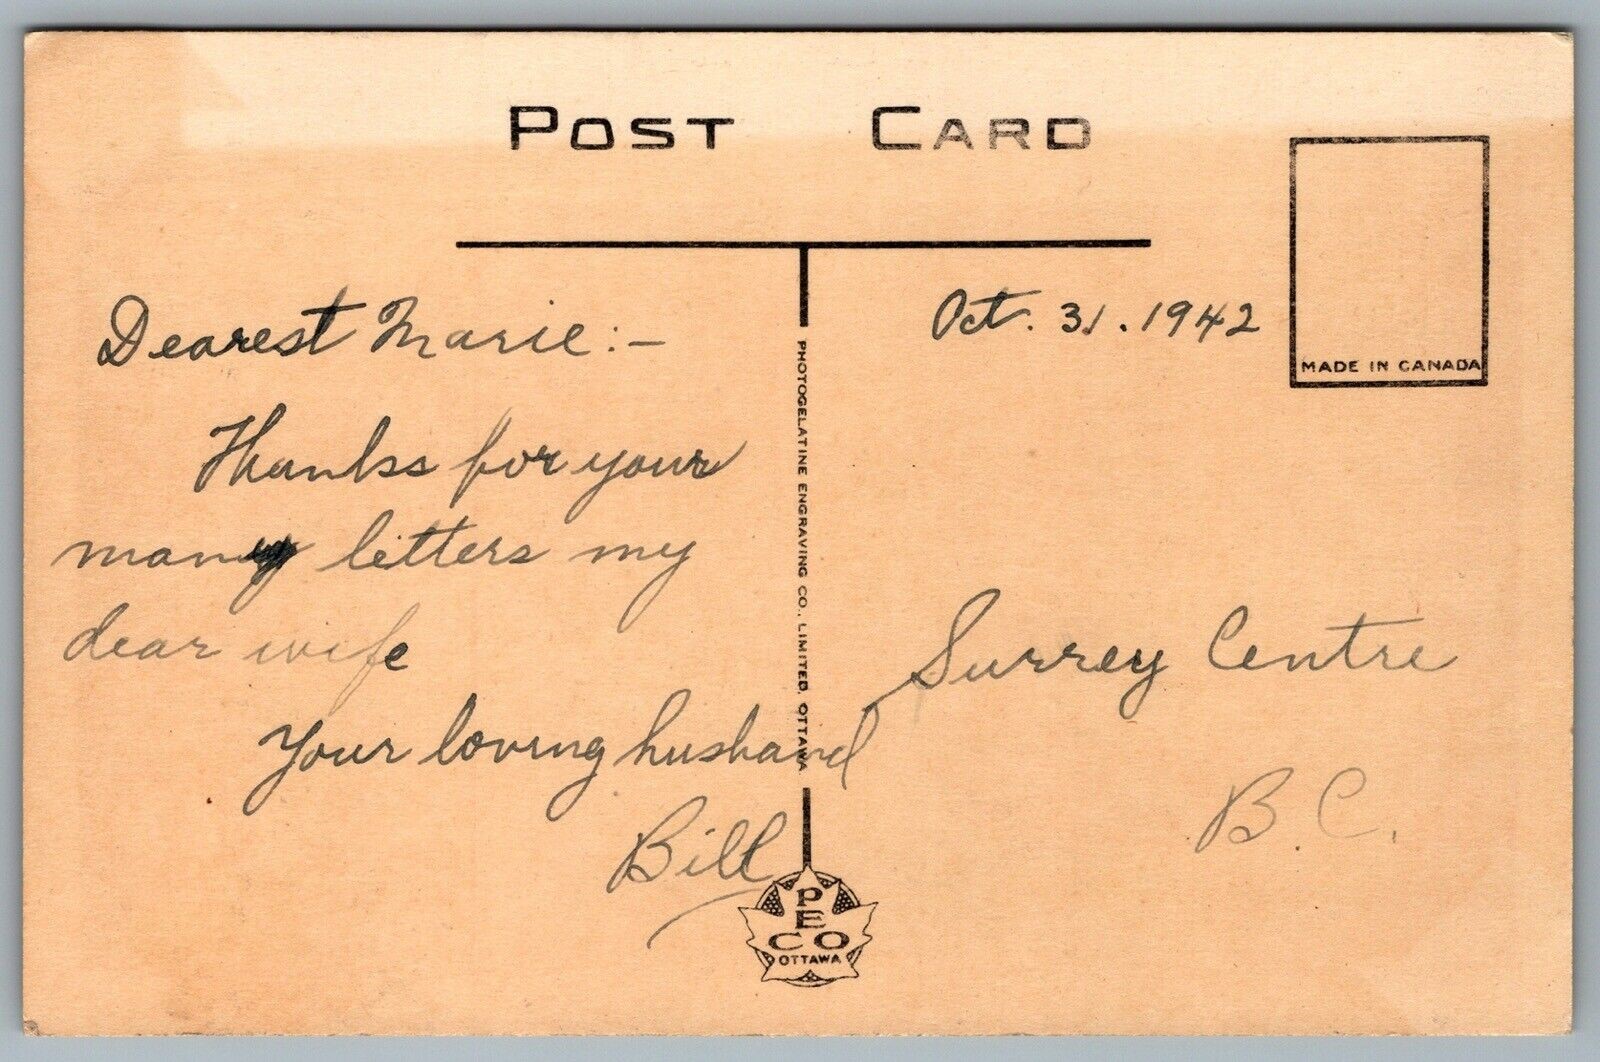 POST CARD
Dearest Marie:-
Thanks for your
many letters my
dear wife
Your loving husband
Bill
PHOTOGELATINE ENGRAVING CO., LIMITED, OTTAWA
PECO
OTTAWA
Oct. 31. 1942
MADE IN CANADA
Surrey Centre
B.C.